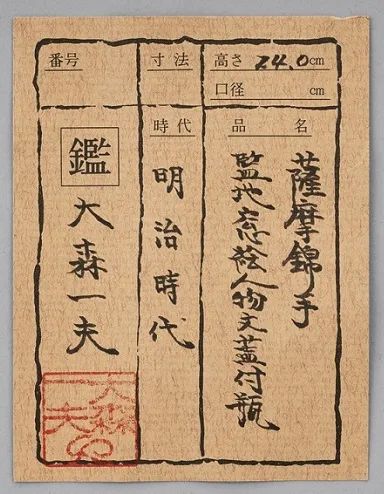 寸法
高さ 24.0cm
口径 cm
品名
薩摩錦手
監地窓絵人物文蓋付瓶
時代
明治時代
番号
鑑
大森一夫
大森
一夫